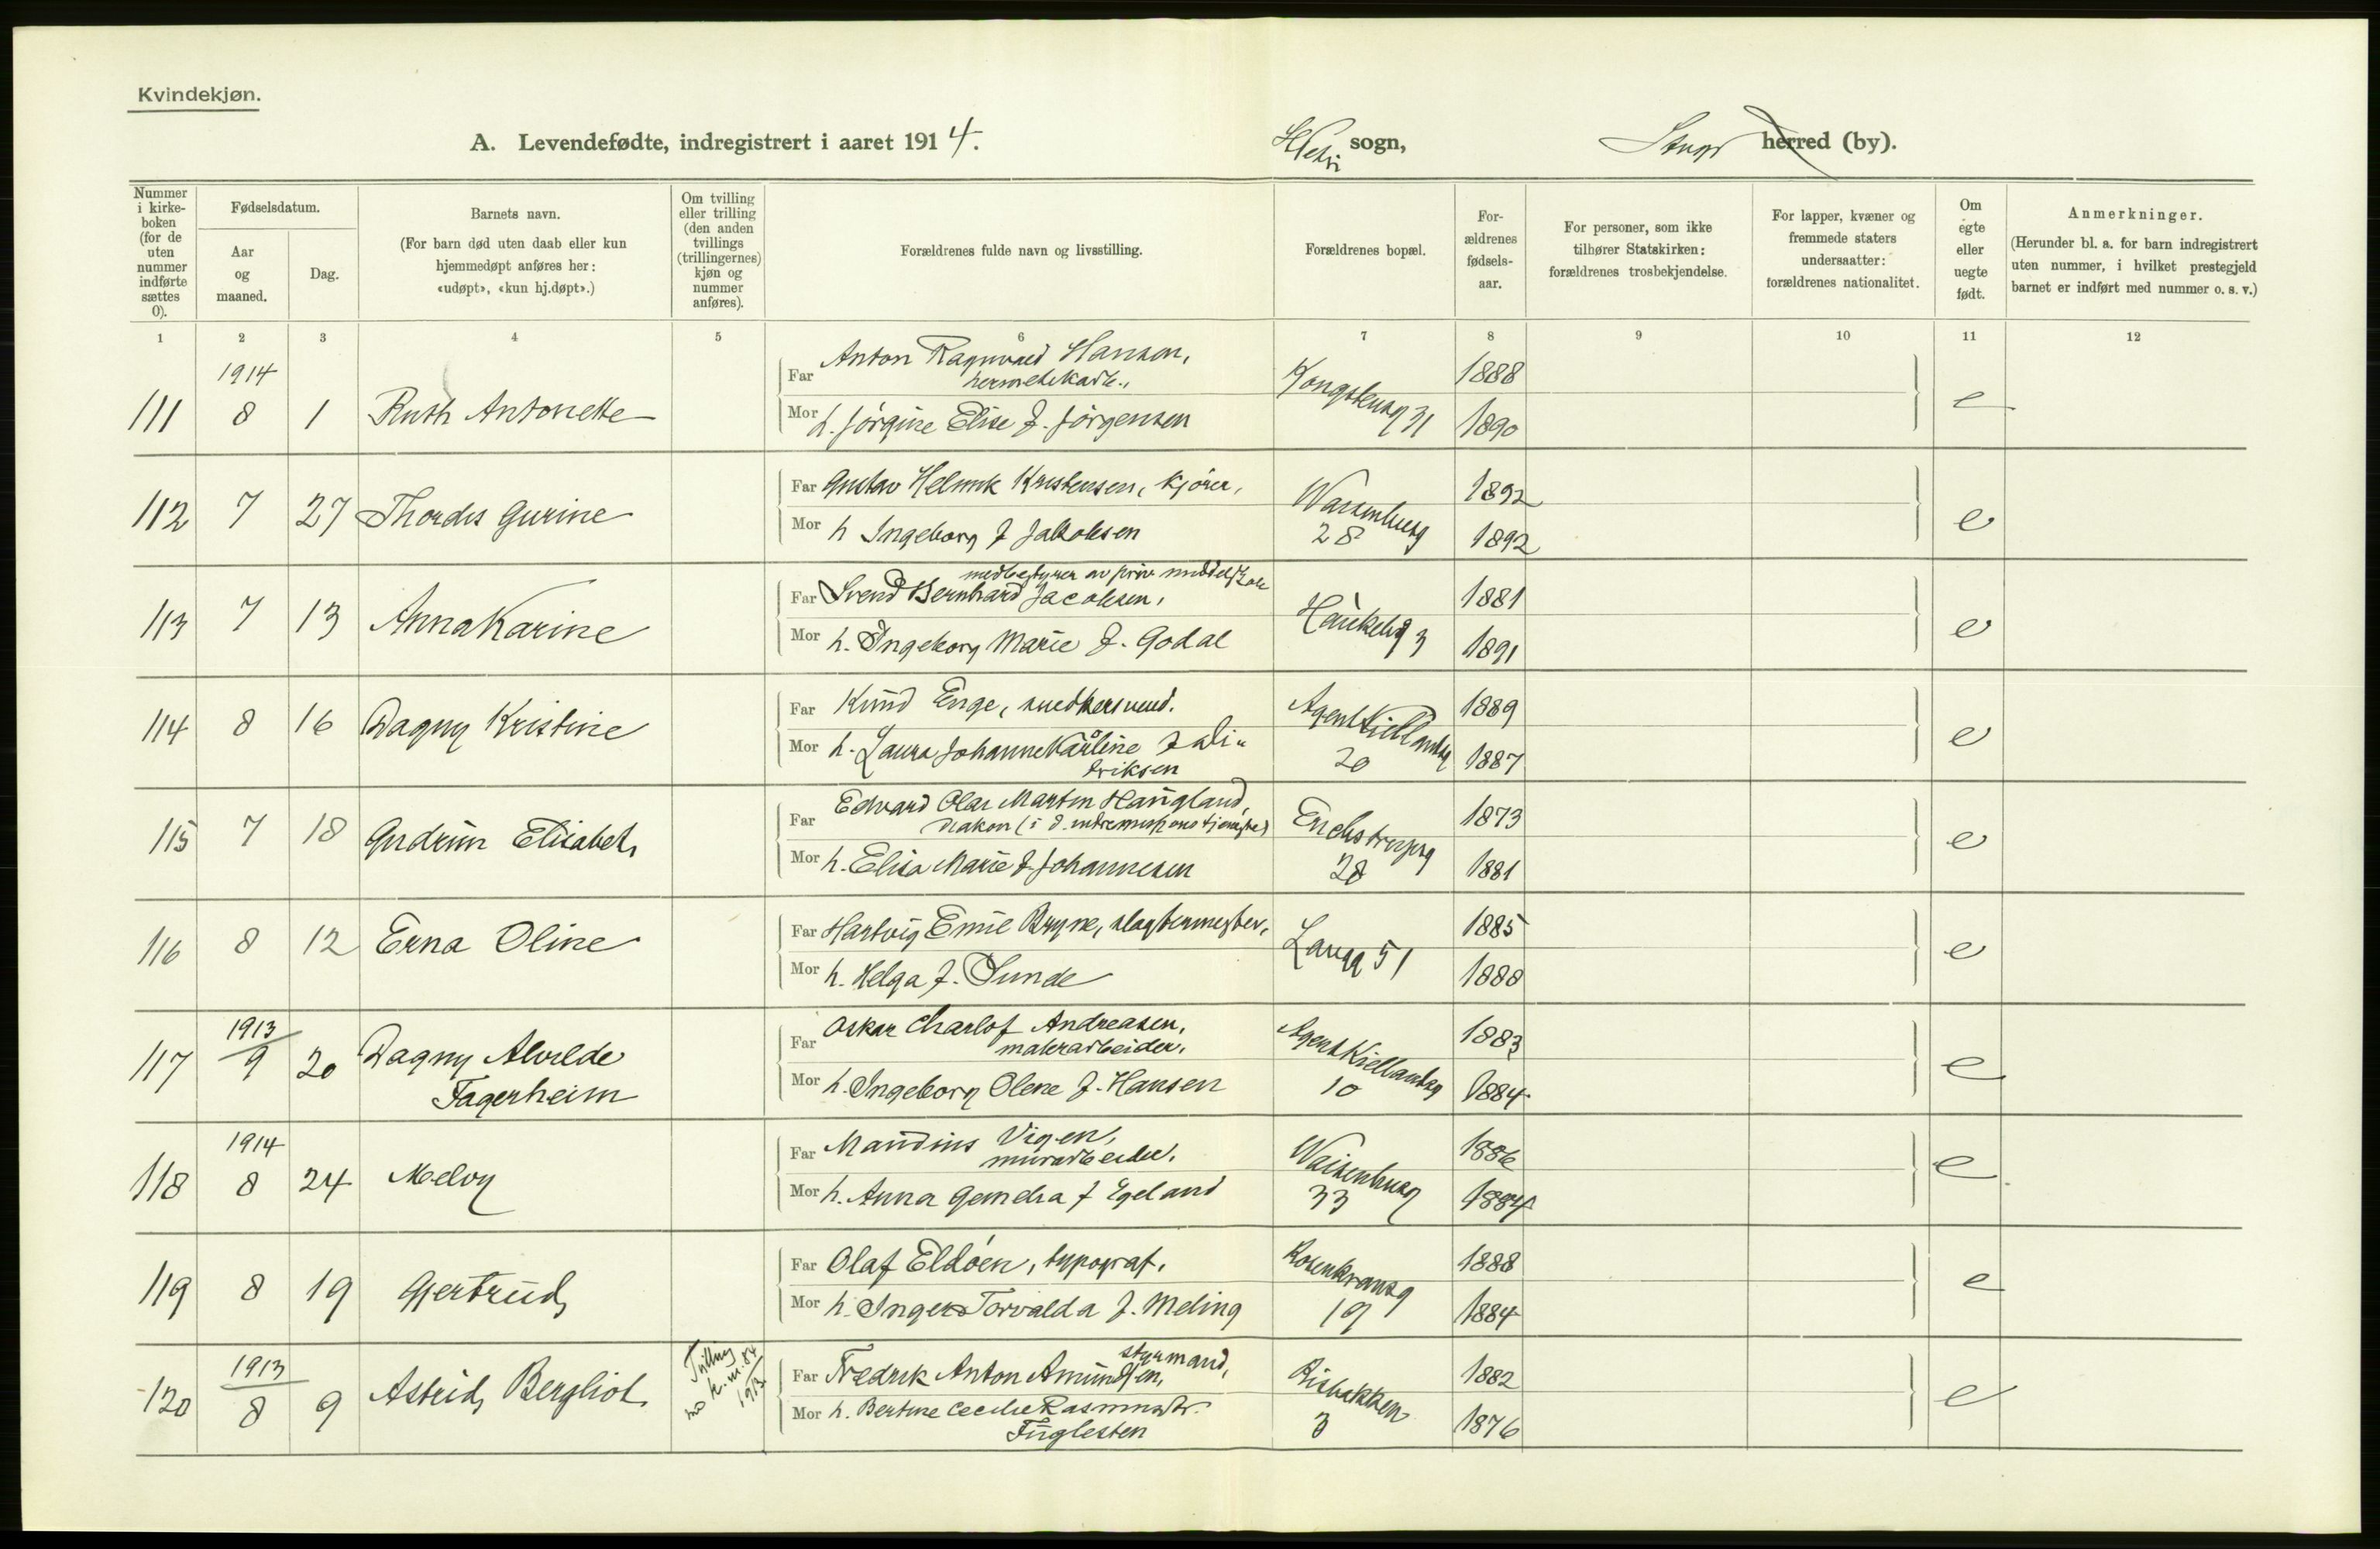 Kvindekjøn.
A. Levendefødte, indregistrert i aaret 1914.
sogn,
herred (by).
Nummer i kirkeboken (for de uten nummer indførte sættes 0).
Fødselsdatum.
Aar og maaned.
Dag.
Barnets navn.
(For barn død uten daab eller kun hjemmedøpt anføres her: «udøpt», «kun hj.døpt».)
Om tvilling eller trilling (den anden tvillings (trillingernes) kjøn og nummer anføres).
Forældrenes fulde navn og livsstilling.
Forældrenes bopæl.
Forældrenes fødselsaar.
For personer, som ikke tilhører Statskirken: forældrenes trosbekjendelse.
For lapper, kvæner og fremmede staters undersaatter: forældrenes nationalitet.
Om egte eller uegte født.
Anmerkninger.
(Herunder bl. a. for barn indregistrert uten nummer, i hvilket prestegjeld barnet er indført med nummer o. s. v.)
1 2 3 4 5 6 7 8 9 10 11 12
111 1914 8 1 Ruth Antonette
Far Anton Ragnvald Hansen,
Kongsteng 31 1888 e
Mor h. Jörgine Elise f. Jörgensen 1890
112 7 27 Thordis Gurine
Far Gustav Helmik Kristensen, kjörer, 1892 e
Mor h Ingeborg f Jakobsen 28 1892
113 7 13 Anna Karine
medbestyrer av priv middelskole
Far Svend Bernhard Jacobsen, 1881
Haukelig 3 e
Mor h. Ingeborg Marie f. Godal 1891
114 8 16 Dagny Kristine
Far Knud Enge, snedkersvend. 1889 e
Mor h. Laura Johanne Karline
Eriksen 20 1887
115 7 18 Gudrun Elisabeth
Far Edvard Olai Martin Haugland, 1873
diakon (i d. indremisjons tjeneste) e
Mor h. Elisa Marie f. Johannesen 28 1881
116 8 12 Erna Oline
Far Hartvig Emil Bryne, slagtermester, 1885
Langg 51 e
Mor h. Helga f. Sunde 1888
117 1913 9 20 Dagny Alvilde
Fagerheim
Far Oskar Charlof Andreasen,
malerarbeider. 1883
Agent Kiellandsg 10 e
Mor h. Ingeborg Olene f. Hansen 1884
118 1914 8 24 Meloy
Far Maudius Vigen,
murarbeider. 1886
33 e
Mor h. Anna f Egeland 1884
119 8 19 Gjertrud
Far Olaf Eldöen, typograf. 1888
Rosenkransg 19 e
Mor h. Inger Torvalda f. Meling 1884
120 1913 8 9 Astrid Bergliot
Tvilling
1913
Far Fredrik Anton Amundsen, styrmand, 1882
Risbakken 3 e
Mor h. Bertine Cecilie Rasmusdtr.
Fuglesten 1876